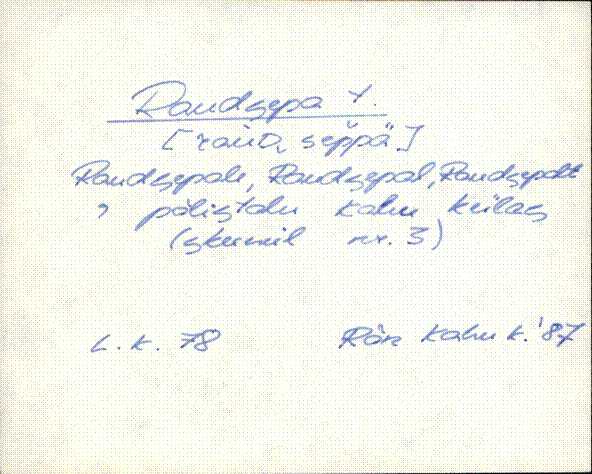 Raudsepa t.
[rauD, seppä]
Raudsepale, Raudsepal, Raudsepalt
, põlistalu Kahu külas
(skeemil nr. 3)
L. k. 78 Rõn Kahu k. '87